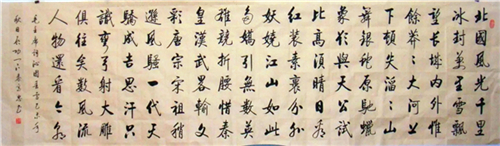 北國風光千里
冰封萬里雪飄
望長城內外惟
餘莽莽大河上
下頓失滔滔山
舞銀蛇原馳蠟
象欲與天公試
比高須晴日看
紅裝素裹分外
妖嬈江山如此
多嬌引無數英
雄競折腰惜秦
皇漢武略輸文
彩唐宗宋祖稍
遜風騷一代天
驕成吉思汗只
識彎弓射大雕
俱往矣數風流
人物還看今朝
毛主席詞沁園春雪